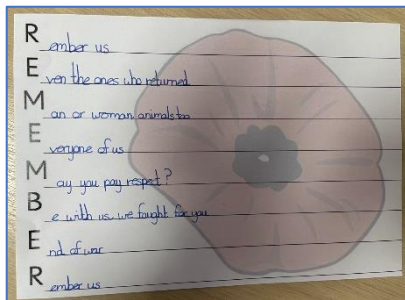 R ember us
E ven the ones who returned
M an or woman animals too
E veryone of us
M ay you pay respect?
B e with us we fought for you
E nd of war
R ember us